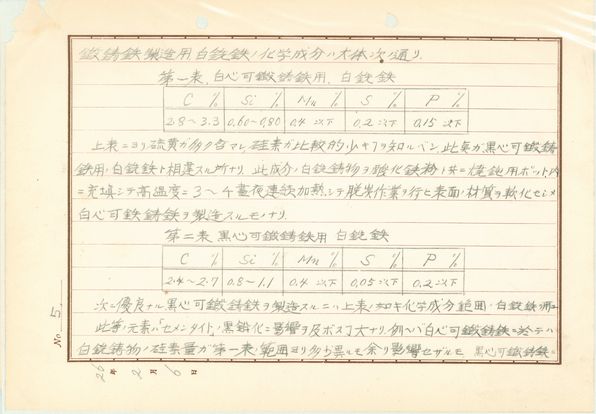 鍛鋳鉄製造用白銑鉄ノ化学成分ハ大体次ノ通リ.
第一表 白心可鍛鋳鉄用 白銑鉄
C % Si % Mn % S % P %
2.8~3.3 0.60~0.80 0.4 以下 0.2 以下 0.15 以下
上表ニヨリ硫黄ガ多ク含マレ,硅素ガ比較的少キヲ知ルベシ,此点ガ黒心可鍛鋳
鉄用白銑鉄ト相違スル所ナリ. 此成分ノ白銑鋳物ヲ酸化鉄粉ト共ニ焼鈍用ポット内
ニ充填シテ高温度ニ3~4昼夜連続加熱シテ脱炭作業ヲ行ヒ表面ノ材質ヲ軟化セシメ
白心可鍛鋳鉄ヲ製造スルモノナリ.
第二表 黒心可鍛鋳鉄用 白銑鉄
C % Si % Mn % S % P %
2.4~2.7 0.8~1.1 0.4 以下 0.05 以下 0.2 以下
次ニ優良ナル黒心可鍛鋳鉄ヲ製造スルニハ上表ノ如キ化学成分範囲ノ白銑鉄
此等ノ元素ハセメンタイトノ黒鉛化ニ影響ヲ及ボスコト大ナリ, 例ヘバ白心可鍛鋳鉄ニ於テハ
白銑鋳物ノ硅素量ガ第一表ノ範囲ヨリ多少異ルモ余リ影響セザルモ 黒心可鍛鋳鉄ニ
No 5
26年 2月 6日